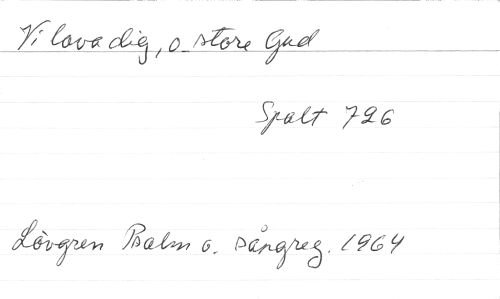 Vi lova dig, o store Gud
Spalt 726
Lövgren Psalm o. sångreg. 1964